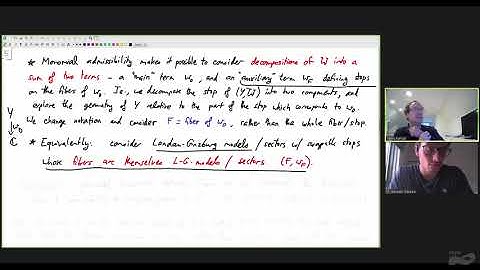 * Monomial admissibility makes it possible to consider decompositions of W into a
sum of two terms - a "main" term w₀, and an "auxiliary" term w_F defining stops
on the fibers of w₀. I.e., we decompose the stop of (Y,W) into two components, and
explore the geometry of Y relative to the part of the stop which corresponds to w₀.
We change notation and consider F = fiber of w₀, rather than the whole fiber/stop.
Y
↓ w₀
C
* Equivalently: consider Landau-Ginzburg models / sectors w/ stops
whose fibers are themselves L-G-models / sectors (F, w_F).